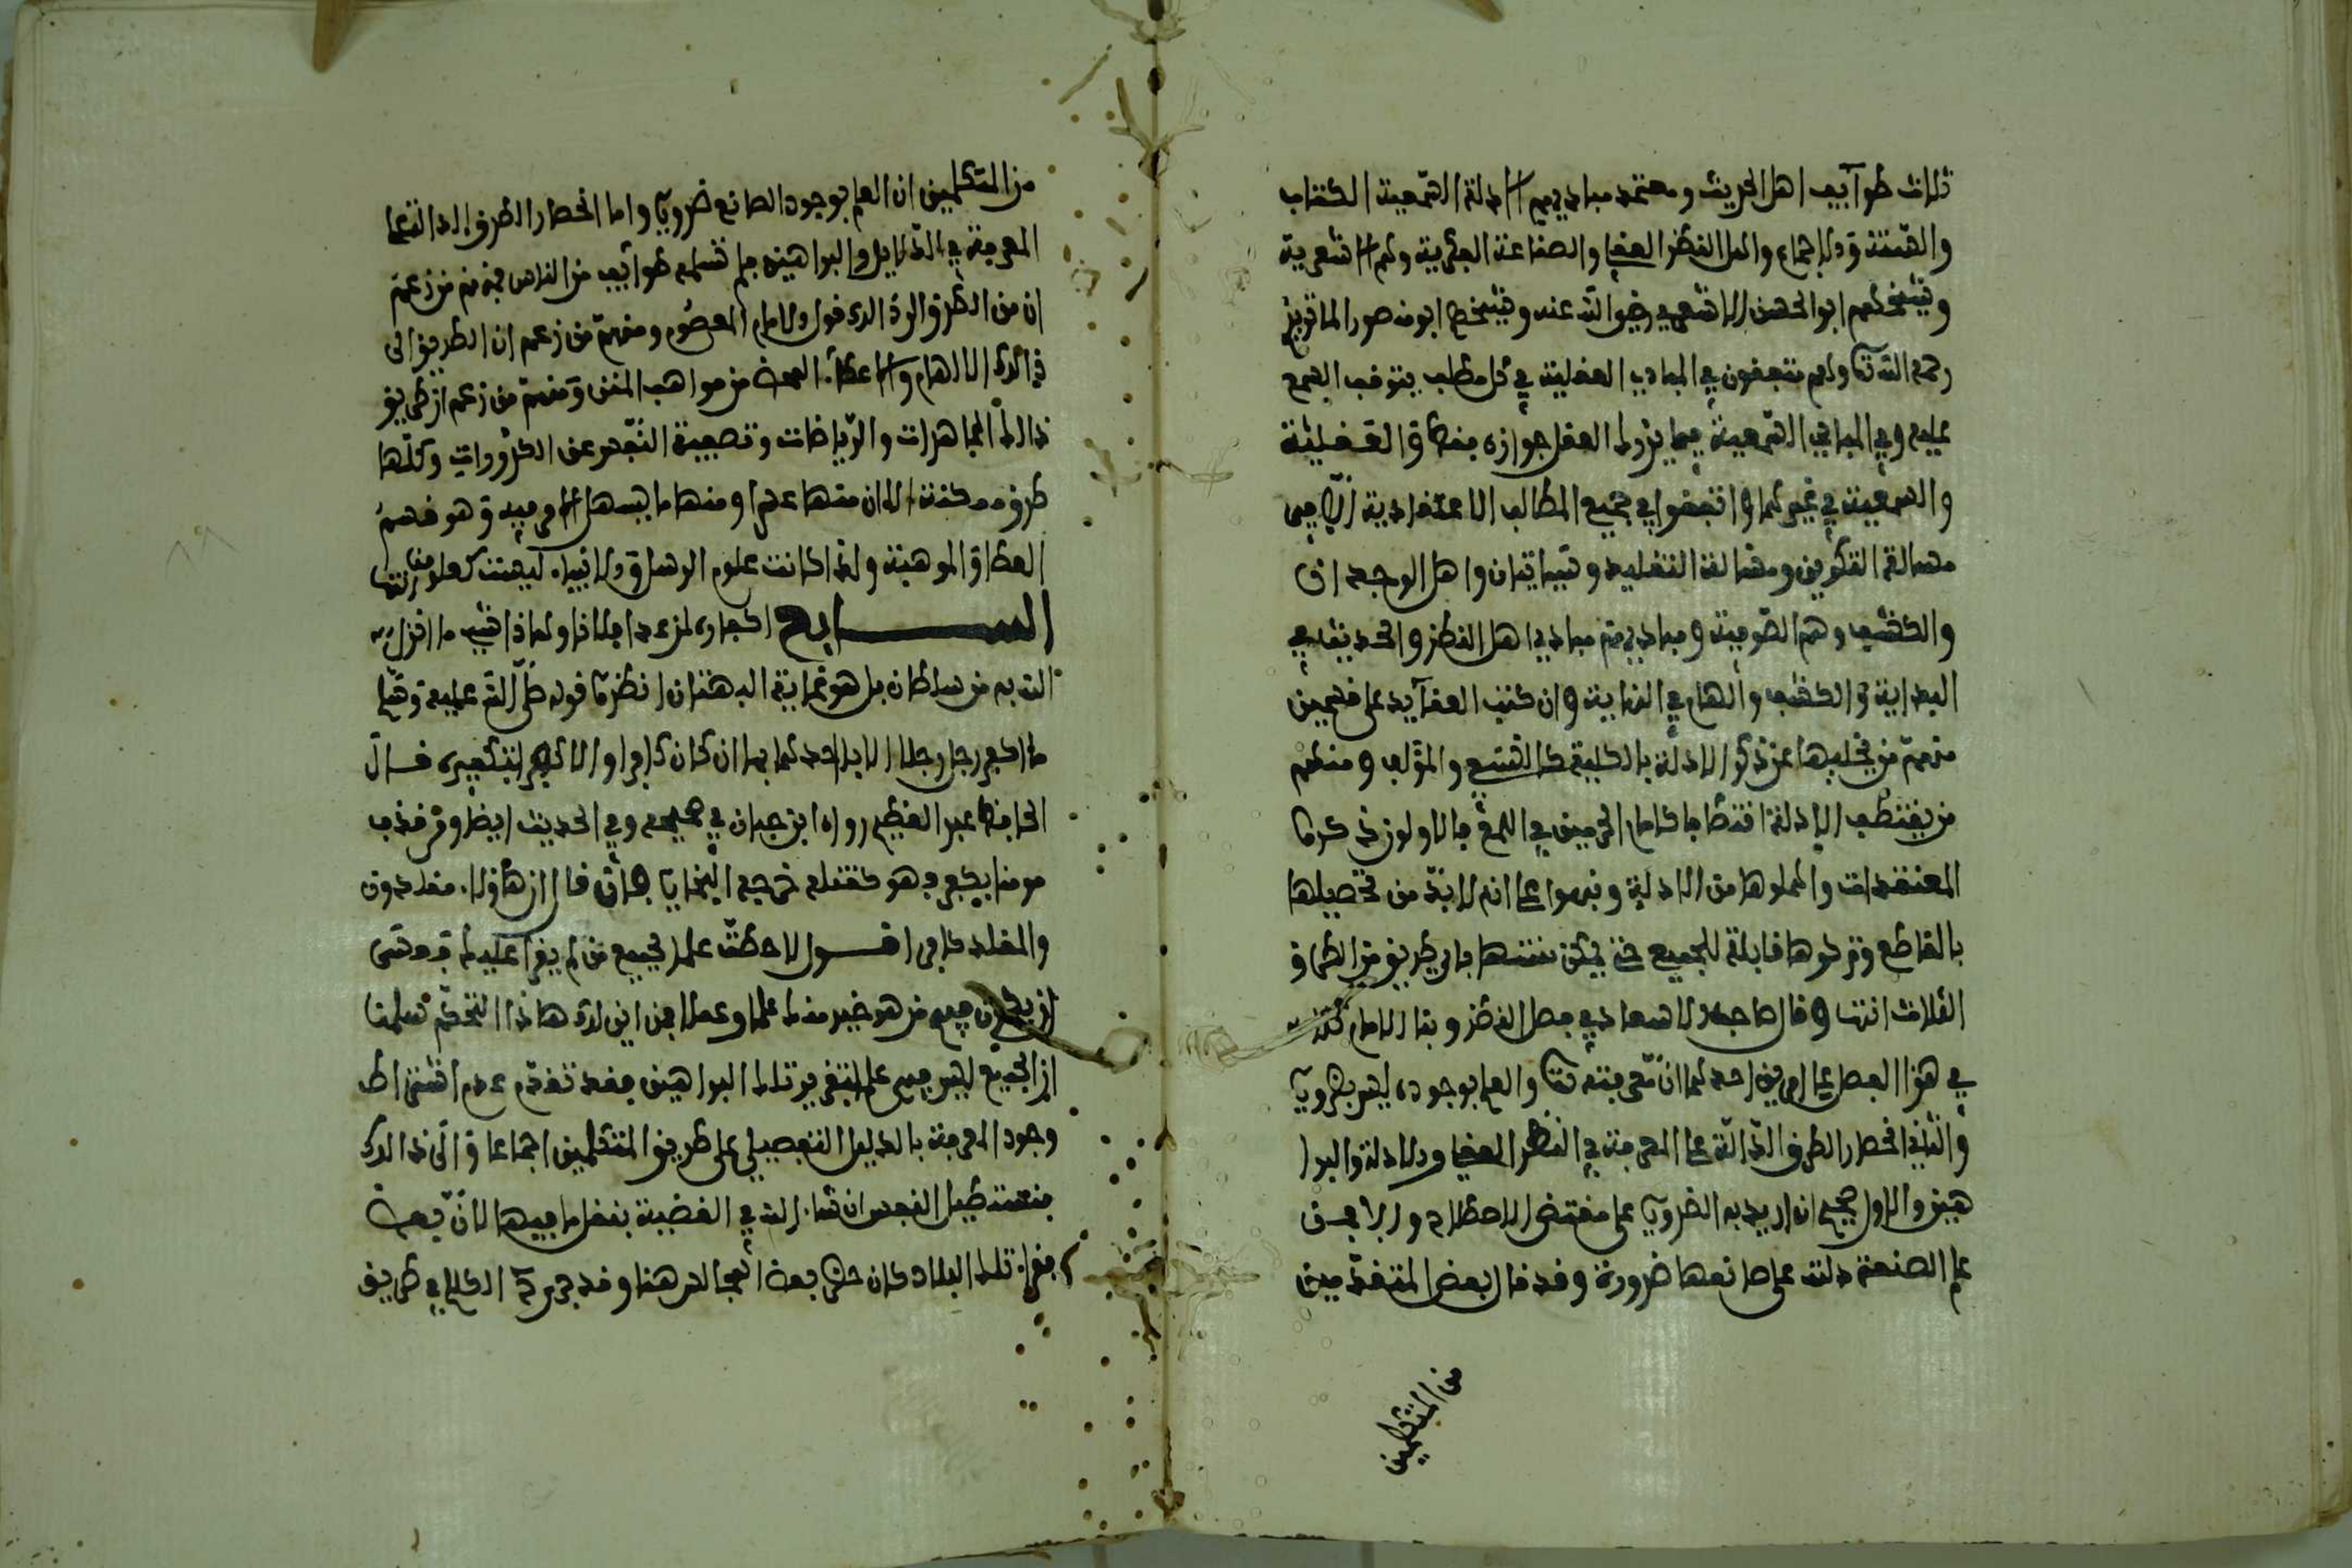 ثلاث طوآيف اهل الحديث ومعتمد مباديهم الادلة السّمعية الكتاب
والسّنة والاجماع واهل النظر العقلي والصناعة الفكرية وهم الاشعرية
وشيخهم ابو الحسن الاشعري رضي الله عنه وشيخهم ابو منصور الماتريدي
رحمه الله تعا وهم متفقون في المبادي العقلية في كل مطلب يتوقف السمع
عليه وفي المبادي السّمعية فيما يدرك العقل جوازه فقط والعقلية
والسمعية في غيرهما واتفقوا في جميع المطالب الاعتقادية الّا في
مسالة التكوين ومسالة التقليد وسياتيان واهل الوجدان
والكشف وهم الصّوفية ومباديهم مبادي اهل النظر والحديث في
البداية والكشف والهام في النهاية وان كتب العقآيد على قسمين
منهم من يخليها عن ذكر الادلة بالكلية كالنسفي والمؤلف ومنهم
من يقتطف الادلة اقتطافا كامام الحرمين في اللمع فالاولون ذكروا
المعتقدات واهملوها من الادلة ونبهوا على انه لا بدّ من تحصيلها
بالقاطع وتركوها قابلة للجميع حتى يمكن بثتها باي طريق من الطرق
الثلاث انتها وقال صاحب الاسعاد في فصل النظر وبنا الامام
في هذا الفصل على امرين احدهما انّ معرفته تعا والعلم بوجوده ليس بضروريّا
والثاني انحصار الطرق الدّالّة على المعرفة في النظر العقلي والادلة والبرا
هين والاول صحيح ان اريد به الضروريّ على مقتضى الاصطلاح والا فمن
علم الصنعة دلته على صانعها ضرورة وقد قال بعض المتقدّمين
من المتكلمين
من المتكلمين ان العلم بوجود الصانع ضروريّا واما انحصار الطرق الى الله تعا
المعرفة في الدّلايل والبراهين فلم تسلمه طوآيف من الناس فمنهم من زعم
ان من الطرق الى ذالك قول الامام المعصُوم ومنهمّ من زعم ان الطريق الى
ذالك الالهام والاعطاء المحض من مواهب المنن ومنهمّ من زعم ان طريق
ذالك المجاهدات والرّياضات وتصفية النّفس عن الكدُورات وكلّها
طرق ممكنة الا ان منها عسرا ومنها ما يسهل الامر فيه وهو قسم
العطا والموهبة ولذا كانت علوم الرسل والانبياء ليست كعلومنا انتها
الســـــابع اكفار من عدا جلالنا وهاذا شيء ما انزل
الله به من سلطان بل هو غاية البهتان انظر ما قوله صلّى الله عليه وسّلم
ما اكفر رجل رجلا الا باء احدهما بها ان كان كافرا والا كفر بتكفيره قال
الحافظ عبد العظيم رواه ابن حبان في صحيحه وفي الحديث ايضا ومن قذف
مومنا بكفر فهو كقتله خرجه الشيخان قال ان هاؤلاء مقلدون
والمقلد كافر اقـــول لاحظتّ على جميع من لم يقرا عليك قد عسى
ان يكون فيهم من هو خير منك علما وعملا فمن اين لك هاذا التحكم سلمنا
ان الجميع ليس فيهم على تقرير تلك البراهين فقد تقدّم عدم اشتراط
وجود المعرفة بالدليل التفصيلي على طريق المتكلمين اجماعا وانّى ذالك
فتستطيل النفس ان شاء الله في القضية بنقل ما فيها لانّ بعض
فقراء تلك البلاد كان حضر بعض المجالس هنا وقد جرى الكلام في طريق